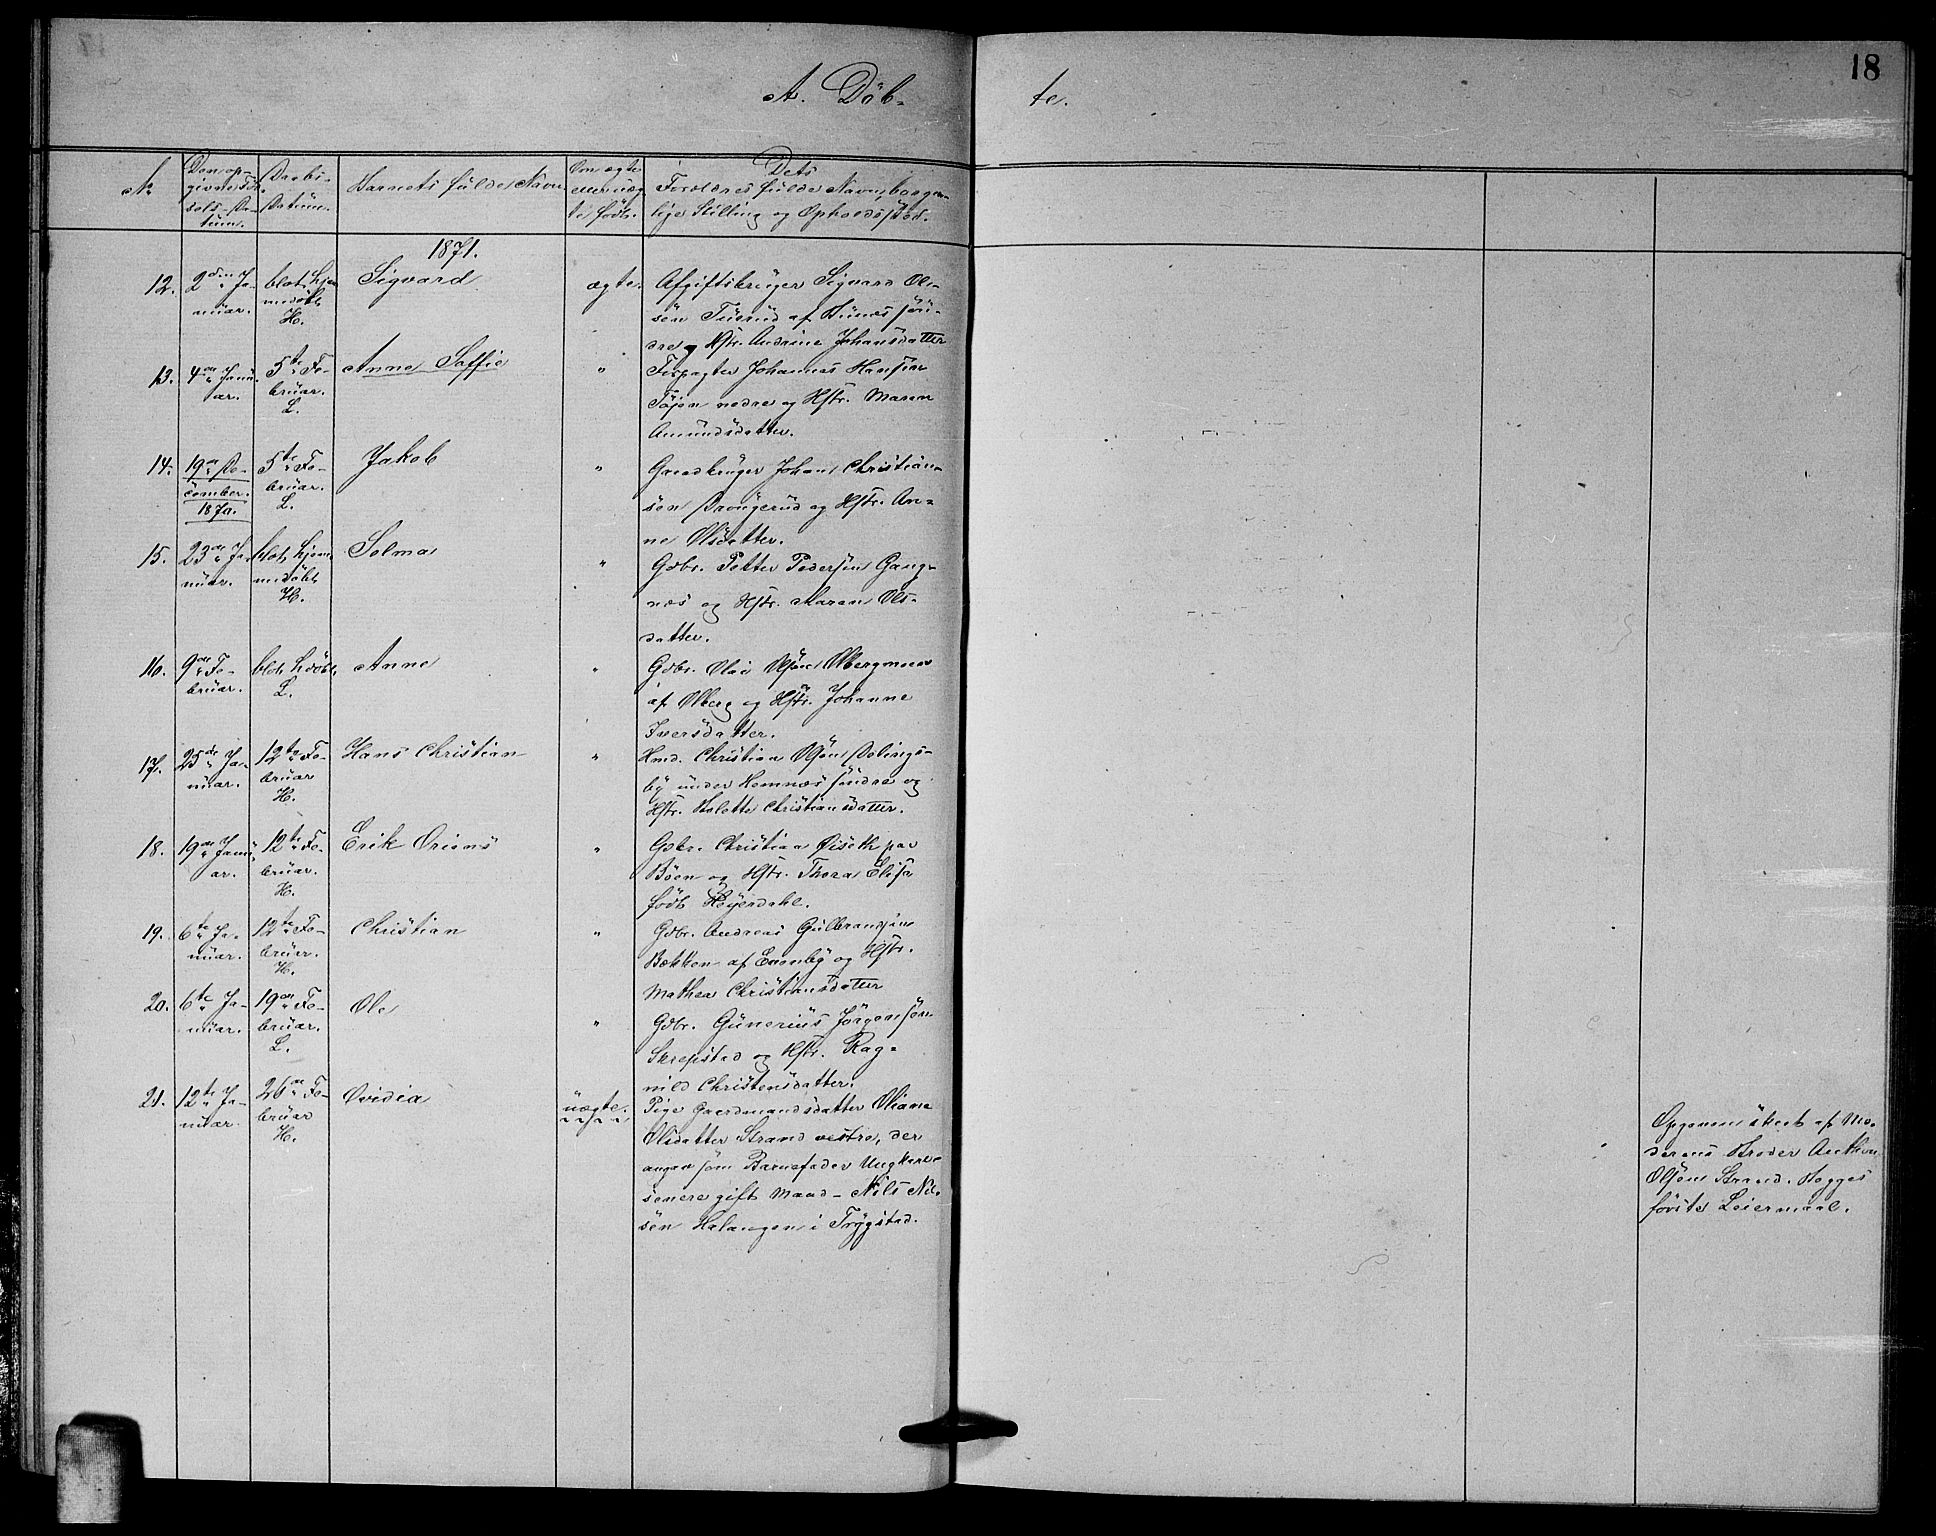 18
A. Döb-
te.
No
Den op-
givne Fød-
sels-Da-
tum.
Daabs-
Datum.
Barnets fulde Navn.
Om ægte
eller uæg-
te født.
Dets
Forældres fulde Navn, borger-
lige Stilling og Opholdssted.
1871.
12.
2den Ja-
nuar.
blot hjem-
medöbt
H.
Sigvard
ægte.
Afgiftsbruger Sigvard Ol-
sen Tuerud af søn-
dre og Hstr. Andrine Johansdatter
13.
4de Janu-
ar.
5te Fe-
bruar.
L.
Anne Saffie
"
Forpagter Johannes Hansen
Töien nedre og Hstr. Maren
Amundsdatter.
14.
19de De-
cember.
1870.
5te Fe-
bruar.
L.
Jakob
"
Gaardbruger Johan Christian-
sen og Hstr. An-
ne Olsdatter.
15.
23de Ja-
nuar.
blot hjem-
medöbt
H.
Selma
"
Gdbr. Petter Pedersen Gang-
næs og Hstr. Maren Ols-
datter.
16.
9de Fe-
bruar.
blot hdöbt.
L.
Anne
"
Gdbr. Olai Olsen
af Olberg og Hstr. Johanne
Iversdatter.
17.
25de Ja-
nuar.
12te Fe-
bruar
H.
Hans Christian
"
Hmd. Christian Olsen Delings-
by under Hemnæs søndre og
Hstr. Halette Christiansdatter.
18.
19de Janu-
ar.
12te Fe-
bruar.
H.
Erik Oriens
"
Gdbr. Christian Øiseth paa
Böen og Hstr. Thora Elise
född Heyerdahl.
19.
6te Ja-
nuar.
12te Fe-
bruar.
H.
Christian
"
Gdbr. Andreas Gulbransen
Bækken af Evenby og Hstr.
Mathea Christiansdatter
20.
6te Ja-
nuar.
19de Fe-
bruar.
L.
Ole
"
Gdbr. Gunerius Jörgensen
Skrepstad og Hstr. Rag-
nild Christensdatter.
21.
12te Ja-
nuar.
26de Fe-
bruar
H.
Ovidia
uægte.
Pige Gaardmandsdatter Oliane
Olsdatter Strand vestre, der
angav som Barnefader Ungkarl-
senere gift Mand - Nils Nil-
sen Halangen i Trygstad.
Opgaven skeet af Mo-
derens Broder Anthon
Olsen Strand. Begges
første Leiermaal.